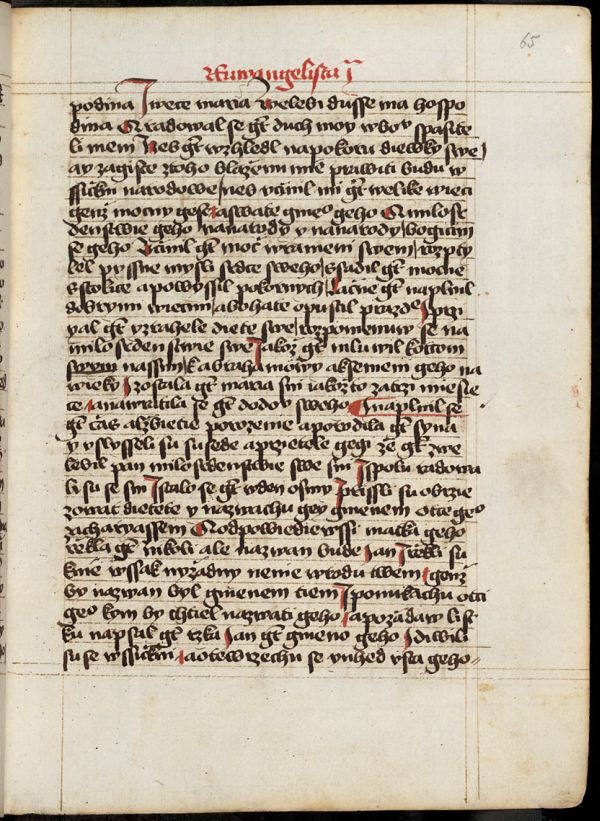 65
Euwangelista j
podina J wece maria Welebi dusse ma hospo
dina A radowal se gt duch moy w boy spasite
li mem Nes gt wzhledl na pokoru diewky swe
ay zagiste ztoho blazeni mie prawiti budu w
ssickni narodowe nes vcinil mi gt welike wieci
genz mocny gest a swate gmeo geho A milosr
denstwie geho na narody y na narody bogicim
se geho Vcinil gt moc w rameni swem rozpty
lel pyssne mysli srdce sweho Ssadil gt mocne
s stolice a powyssil pokornych lacne gt naplnil
dobrymi wiecmi a bohate opustil prazdne J pri
yal gt yzrahele diete swe rozpomenuw se na
milosrdenstwie swe Jakoz gt mluwil k ottom
swym nassim k abrahamowy a k semeni geho na
wieky J zostala gt maria s ni iakozto za trzi miesie
ce a nawratila se gt do domu sweho Naplnil se
gt czas alzbietie porozenie a porodila gt syna
y vslysseli su susede a przietele gegi ze gt zwe
lebil pan milosrdenstwie swe s ni J spolu radowa
li su se s ni J stalo se gt w den osmy prissli su obrzie
zowat dietete y nazywachu gey gmenem otce geo
zacharyassem A odpowiediewssi matka geho
rzekla gt nikoli ale nazwan bude Jan J rzekli su
k nie wssak nyzadny nenie w rodu twem genz
by nazwan byl gmenem tiem J ponukachu otci
geo kym by chtiel nazwati geho A pozadaw list
ku napsal gt rzka Jan gt gmeno geho J diwili
su se wssickni a otewrzechu se ynhed vsta geho